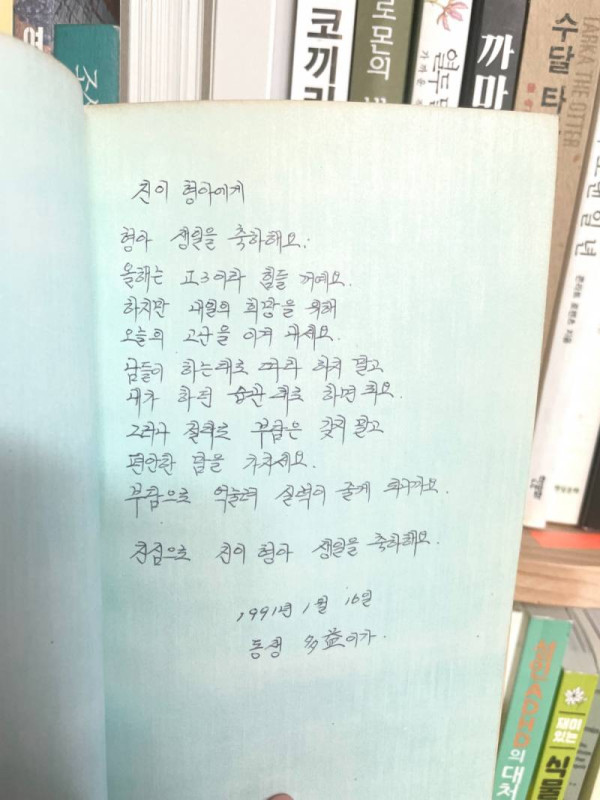 여
주식
코끼리
로몬의
열두 달
까마
수달 타
TARKA THE OTTER
일년
콘라트 로렌츠 지음
진이 형아에게
형아 생일을 축하해요.
올해는 고3이라 힘들 꺼예요.
하지만 내일의 희망을 위해
오늘의 고난을 이겨 내세요.
남들이 하는대로 따라 하지 말고
내가 하던 습관 대로 하면 되요.
그리고 절대로 부담은 갖지 말고
편안한 맘을 가지세요.
부담으로 억눌려 실력이 줄게 되니까요.
진심으로 진이 형아 생일을 축하해요.
1991년 1월 16일
동생 多益이가.
성인ADHD의 대처
재미있는 식물